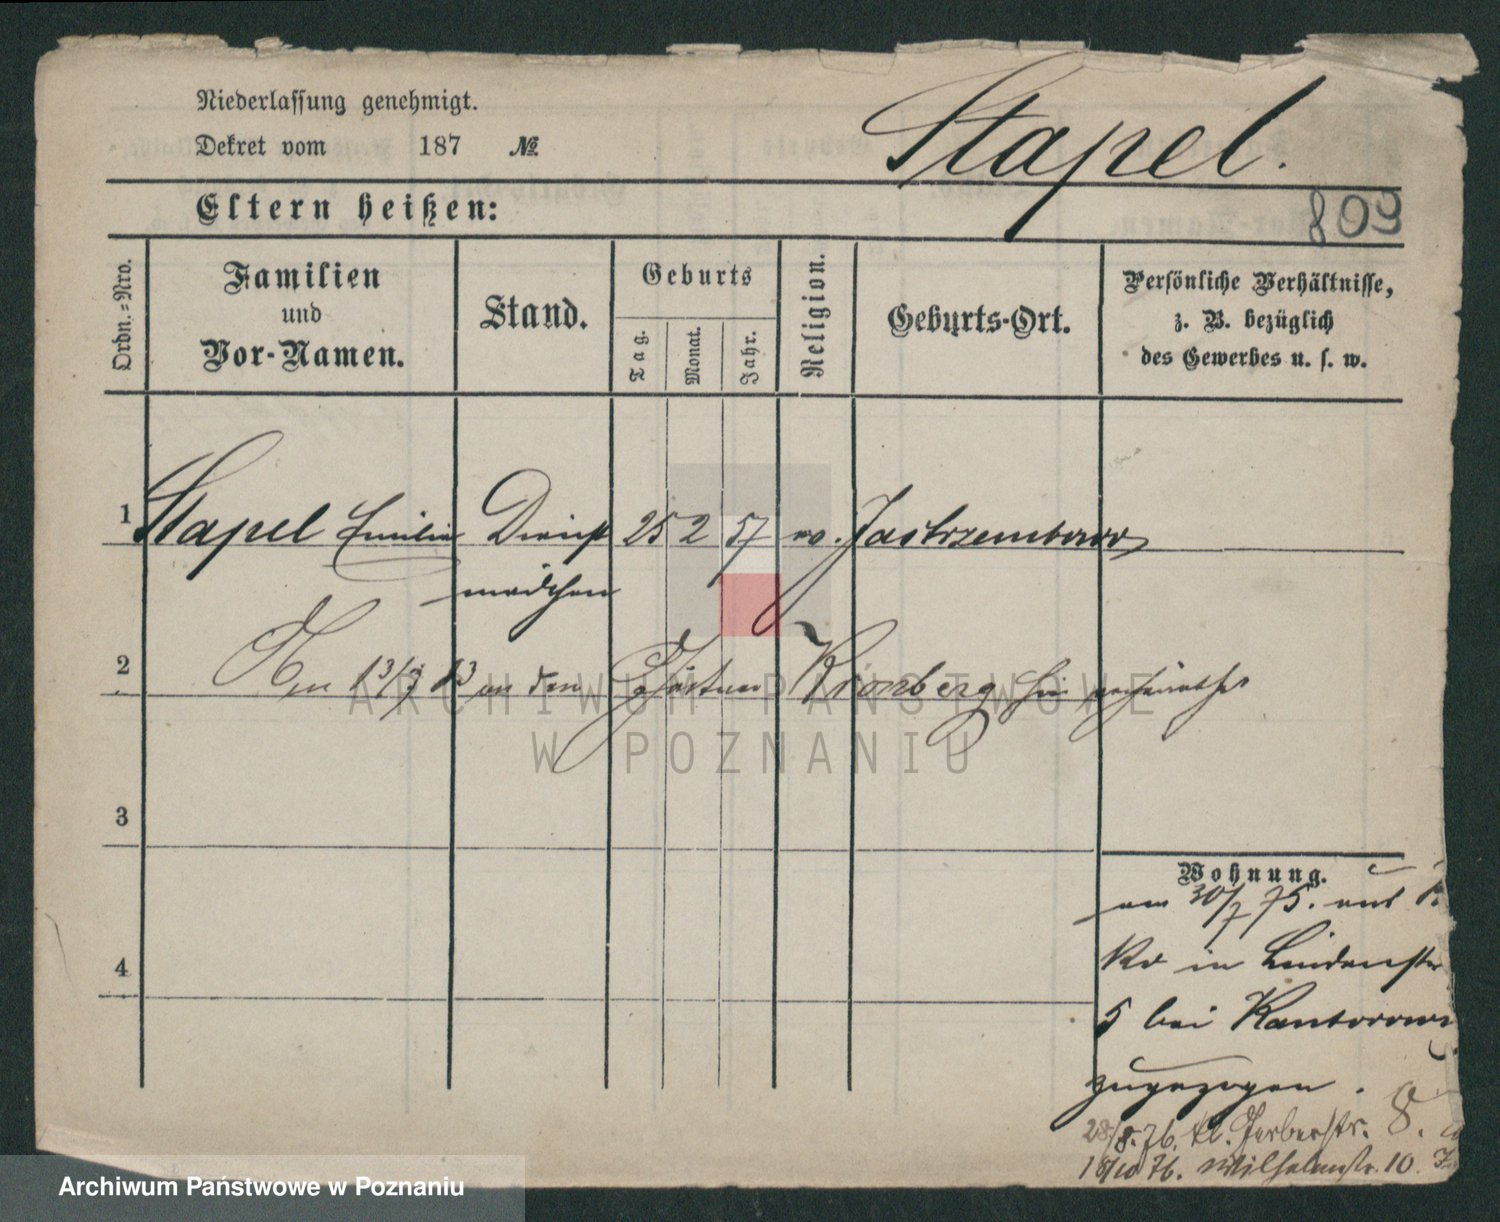 Niederlassung genehmigt.
Dekret vom 187 №
Stapel.
Eltern heißen:
809
Ordn.-Nro.
Familien
und
Vor-Namen.
Stand.
Geburts
Tag.
Monat.
Jahr.
Religion.
Geburts-Ort.
Persönliche Verhältnisse,
z. B. bezüglich
des Gewerbes u. s. w.
1 Stapel Emilie Dienst 25 2 57 ev. Jastrzembowo
mädchen
2 an den Gärtner Kronberg hier verheirathet
ARCHIWUM PAŃSTWOWE
W POZNANIU
3
Wohnung.
am 30/7 75. aus
4
in Lindenstr
5 bei Kantorow
zugezogen.
28/8. 76. kl. Gerberstr. 8.
18/10 76. Wilhelmstr. 10
Archiwum Państwowe w Poznaniu